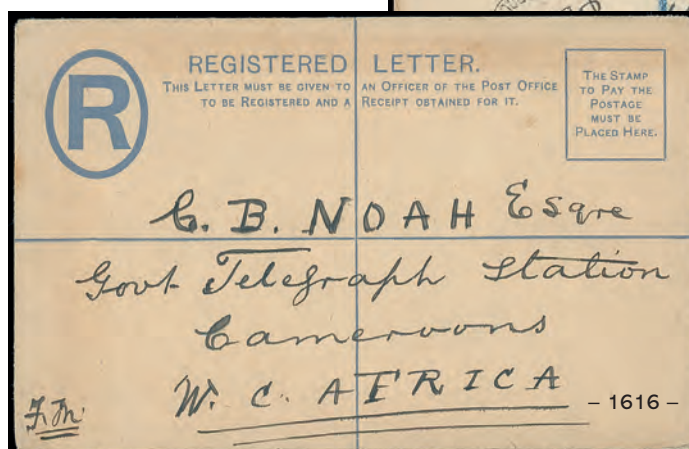 R
REGISTERED LETTER.
THIS LETTER MUST BE GIVEN TO AN OFFICER OF THE POST OFFICE
TO BE REGISTERED AND A RECEIPT OBTAINED FOR IT.
THE STAMP
TO PAY THE
POSTAGE
MUST BE
PLACED HERE.
C. B. NOAH Esqre
Govt Telegraph Station
Cameroons
W. C. AFRICA
– 1616 –